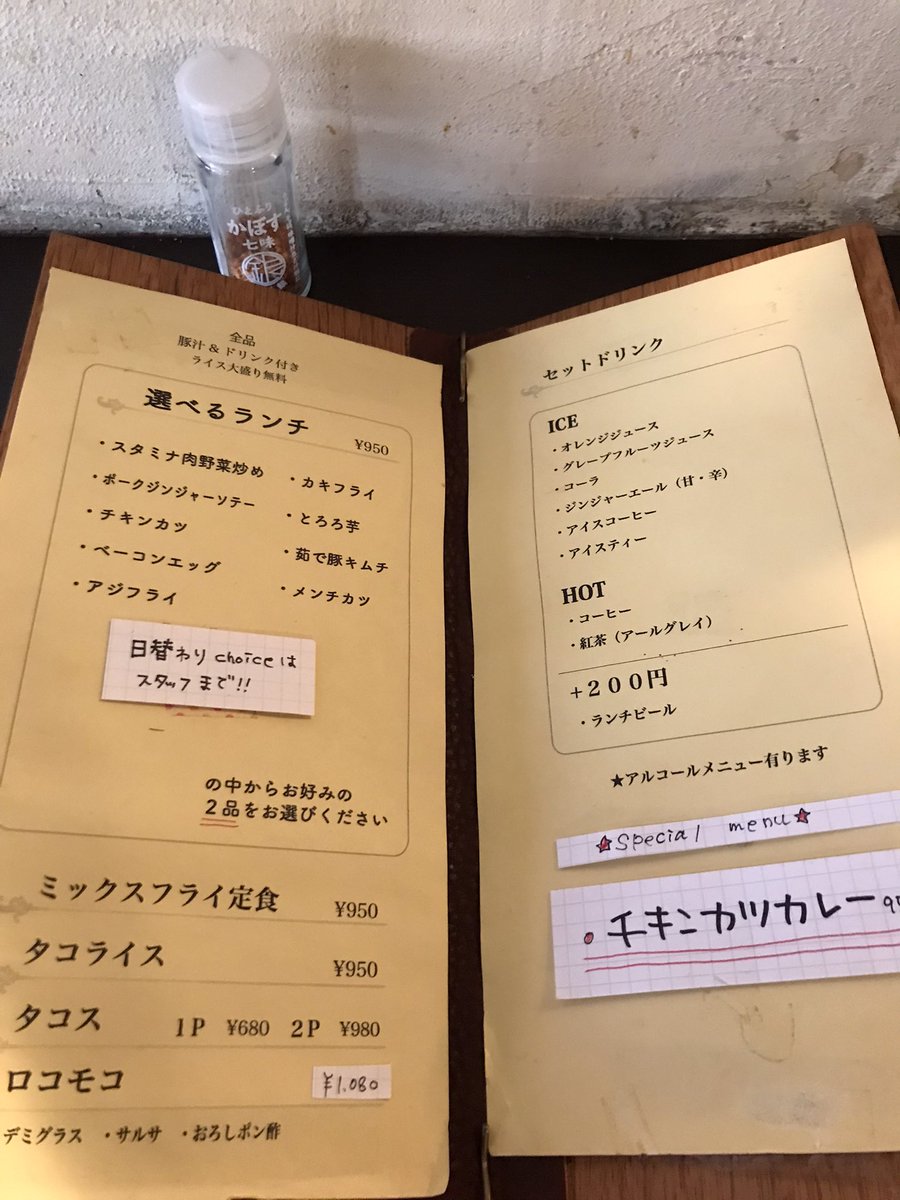 かぼす
七味
全品
豚汁&ドリンク付き
ライス大盛り無料
選べるランチ ¥950
・スタミナ肉野菜炒め
・ポークジンジャーソテー
・チキンカツ
・ベーコンエッグ
・アジフライ
・カキフライ
・とろろ芋
・茹で豚キムチ
・メンチカツ
日替わりchoiceは
スタッフまで!!
の中からお好みの
2品をお選びください
ミックスフライ定食 ¥950
タコライス ¥950
タコス 1P ¥680 2P ¥980
ロコモコ ¥1.080
デミグラス ・サルサ ・おろしポン酢
セットドリンク
ICE
・オレンジジュース
・グレープフルーツジュース
・コーラ
・ジンジャーエール（甘・辛）
・アイスコーヒー
・アイスティー
HOT
・コーヒー
・紅茶（アールグレイ）
+200円
・ランチビール
★アルコールメニュー有ります
★Special menu★
・チキンカツカレー